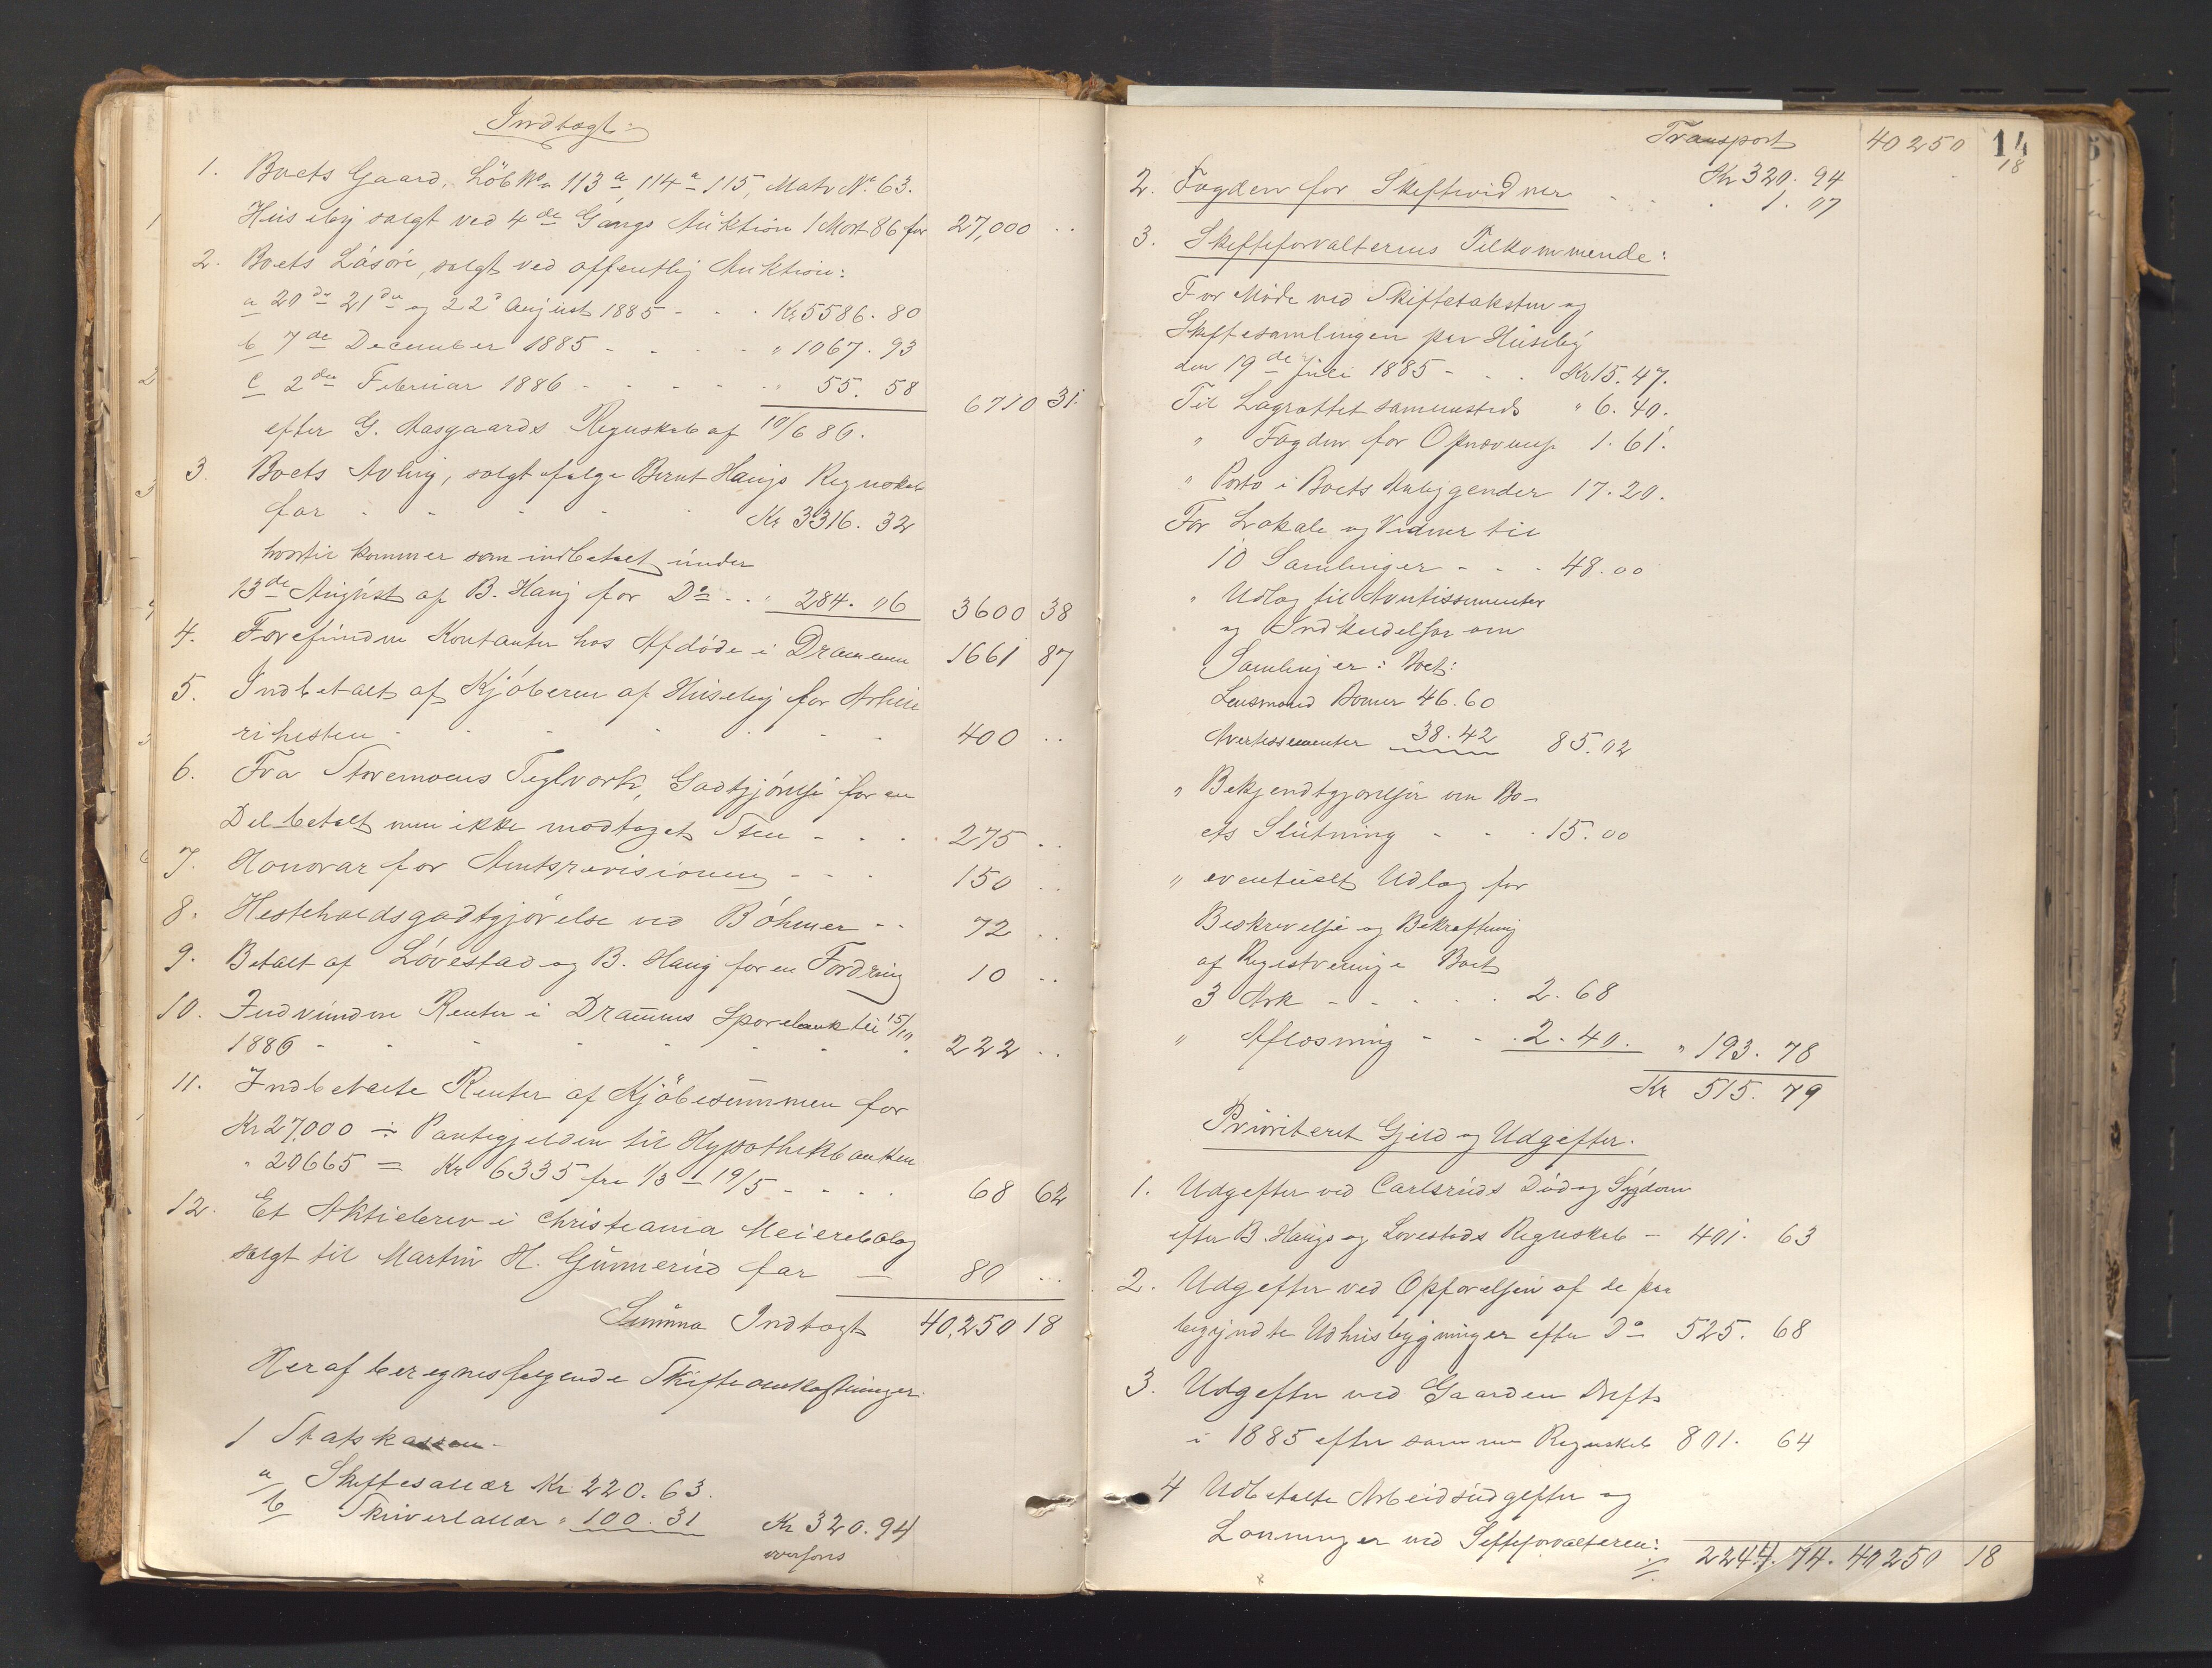 Indtægt
1. Boets Gaard, Löb No 113a, 114a 115, Matr. No. 63.
Huseby solgt ved 4de Gangs Auktion 1 Mart 86 for 27,000 ..
2. Boets Lösöre, solgt ved offentlig Auktion:
a 20de 21de og 22d August 1885 - - . Kr 5586. 80
b 7de December 1885 - - - - " 1067. 93
c 2den Februar 1886 - - - - - " 55. 58
6710 31.
efter G. Aasgaards Regnskab af 10/6 86.
3. Boets Avling, solgt ifølge Bernt Haugs Regnskab
for - - - - - Kr 3316. 32
hvortil kommer som indbetalt under
13de August af B. Haug for Do - . " 284. 06 3600 38
4. Forefundne Kontanter hos Afdöde i Drammen 1661 87
5. Indbetalt af Kjöberen af Huseby for Artille
rihesten - - - - - - 400 ..
6. Fra Storemoens Teglværk, Godtgjörelse for en
Del betalt men ikke modtaget Sten - - . . 275 ..
7. Honorar for Amtsrevisionen - - - 150 ..
8. Hesteholdsgodtgjörelse ved Böhmer - - 72 ..
9. Betalt af Lövestad og B. Haug for en Fordring 10 ..
10. Indvundne Renter i Dramens Sparebank til 15/10
1886 - - - - - - - . 222 ..
11. Indbetalte Renter af Kjöbesummen for
Kr 27,000 ÷ Pantegjelden til Hypothekbanken
" 20665 = Kr 6335 fra 1/3 - 19/5 - - - . 68 62
12. Et Aktiebrev i Christiania Meieribolag
solgt til Martin H. Gunnerud for — 80 ..
Summa Indtægt 40,250 18
Heraf beregnes følgende Skifteomkostninger
1 Statskassen -
a Skiftesallær Kr. 220. 63.
b Skriversallær " 100. 31 Kr 320. 94
overføres
Transport 40250 18
14
Kr 320. 94
2. Fogden for Skiftevidner - - . 1. 07
3. Skifteforvalterens Tilkommende:
For Møde ved Skiftetaksten og
Skiftesamlingen paa Huseby
den 19de Juli 1885 - . . Kr 15. 47.
Til Lagrettet sammesteds " 6. 40.
" Fogden for Opnævnelse 1. 61.
" Porto i Boets Anliggender 17. 20.
For Lokale og Vidner til
10 Samlinger - - - 48. 00
" Udlæg til Avertissementer
og Indkaldelser om
Samlinger: Boet:
Lensmand Borner 46. 60
Avertissementer 38. 42 85. 02
" Bekjendtgjørelser om Bo-
ets Slutning - - . 15. 00
" eventuelt Udlæg for
Beskrivelse og Bekræftning
af Registrering i Boet
3 Ark - - . . . 2. 68
" Aflæsning - - . 2. 40. " 193. 78
Kr 515. 79
Prioriteret Gjeld og Udgifter.
1. Udgifter ved Carlsruds Död og Sygdom
efter B. Haugs og Lövestads Regnskab - 401. 63
2. Udgifter ved Opførelsen af de paa
begyndte Udhusbygninger efter Do 525. 68
3. Udgifter ved Gaardens Drift
i 1885 efter samme Regnskab 801. 64
4 Udbetalte Arbeidsudgifter og
Lønninger ved Skifteforvalteren:
2244. 74. 40250 18